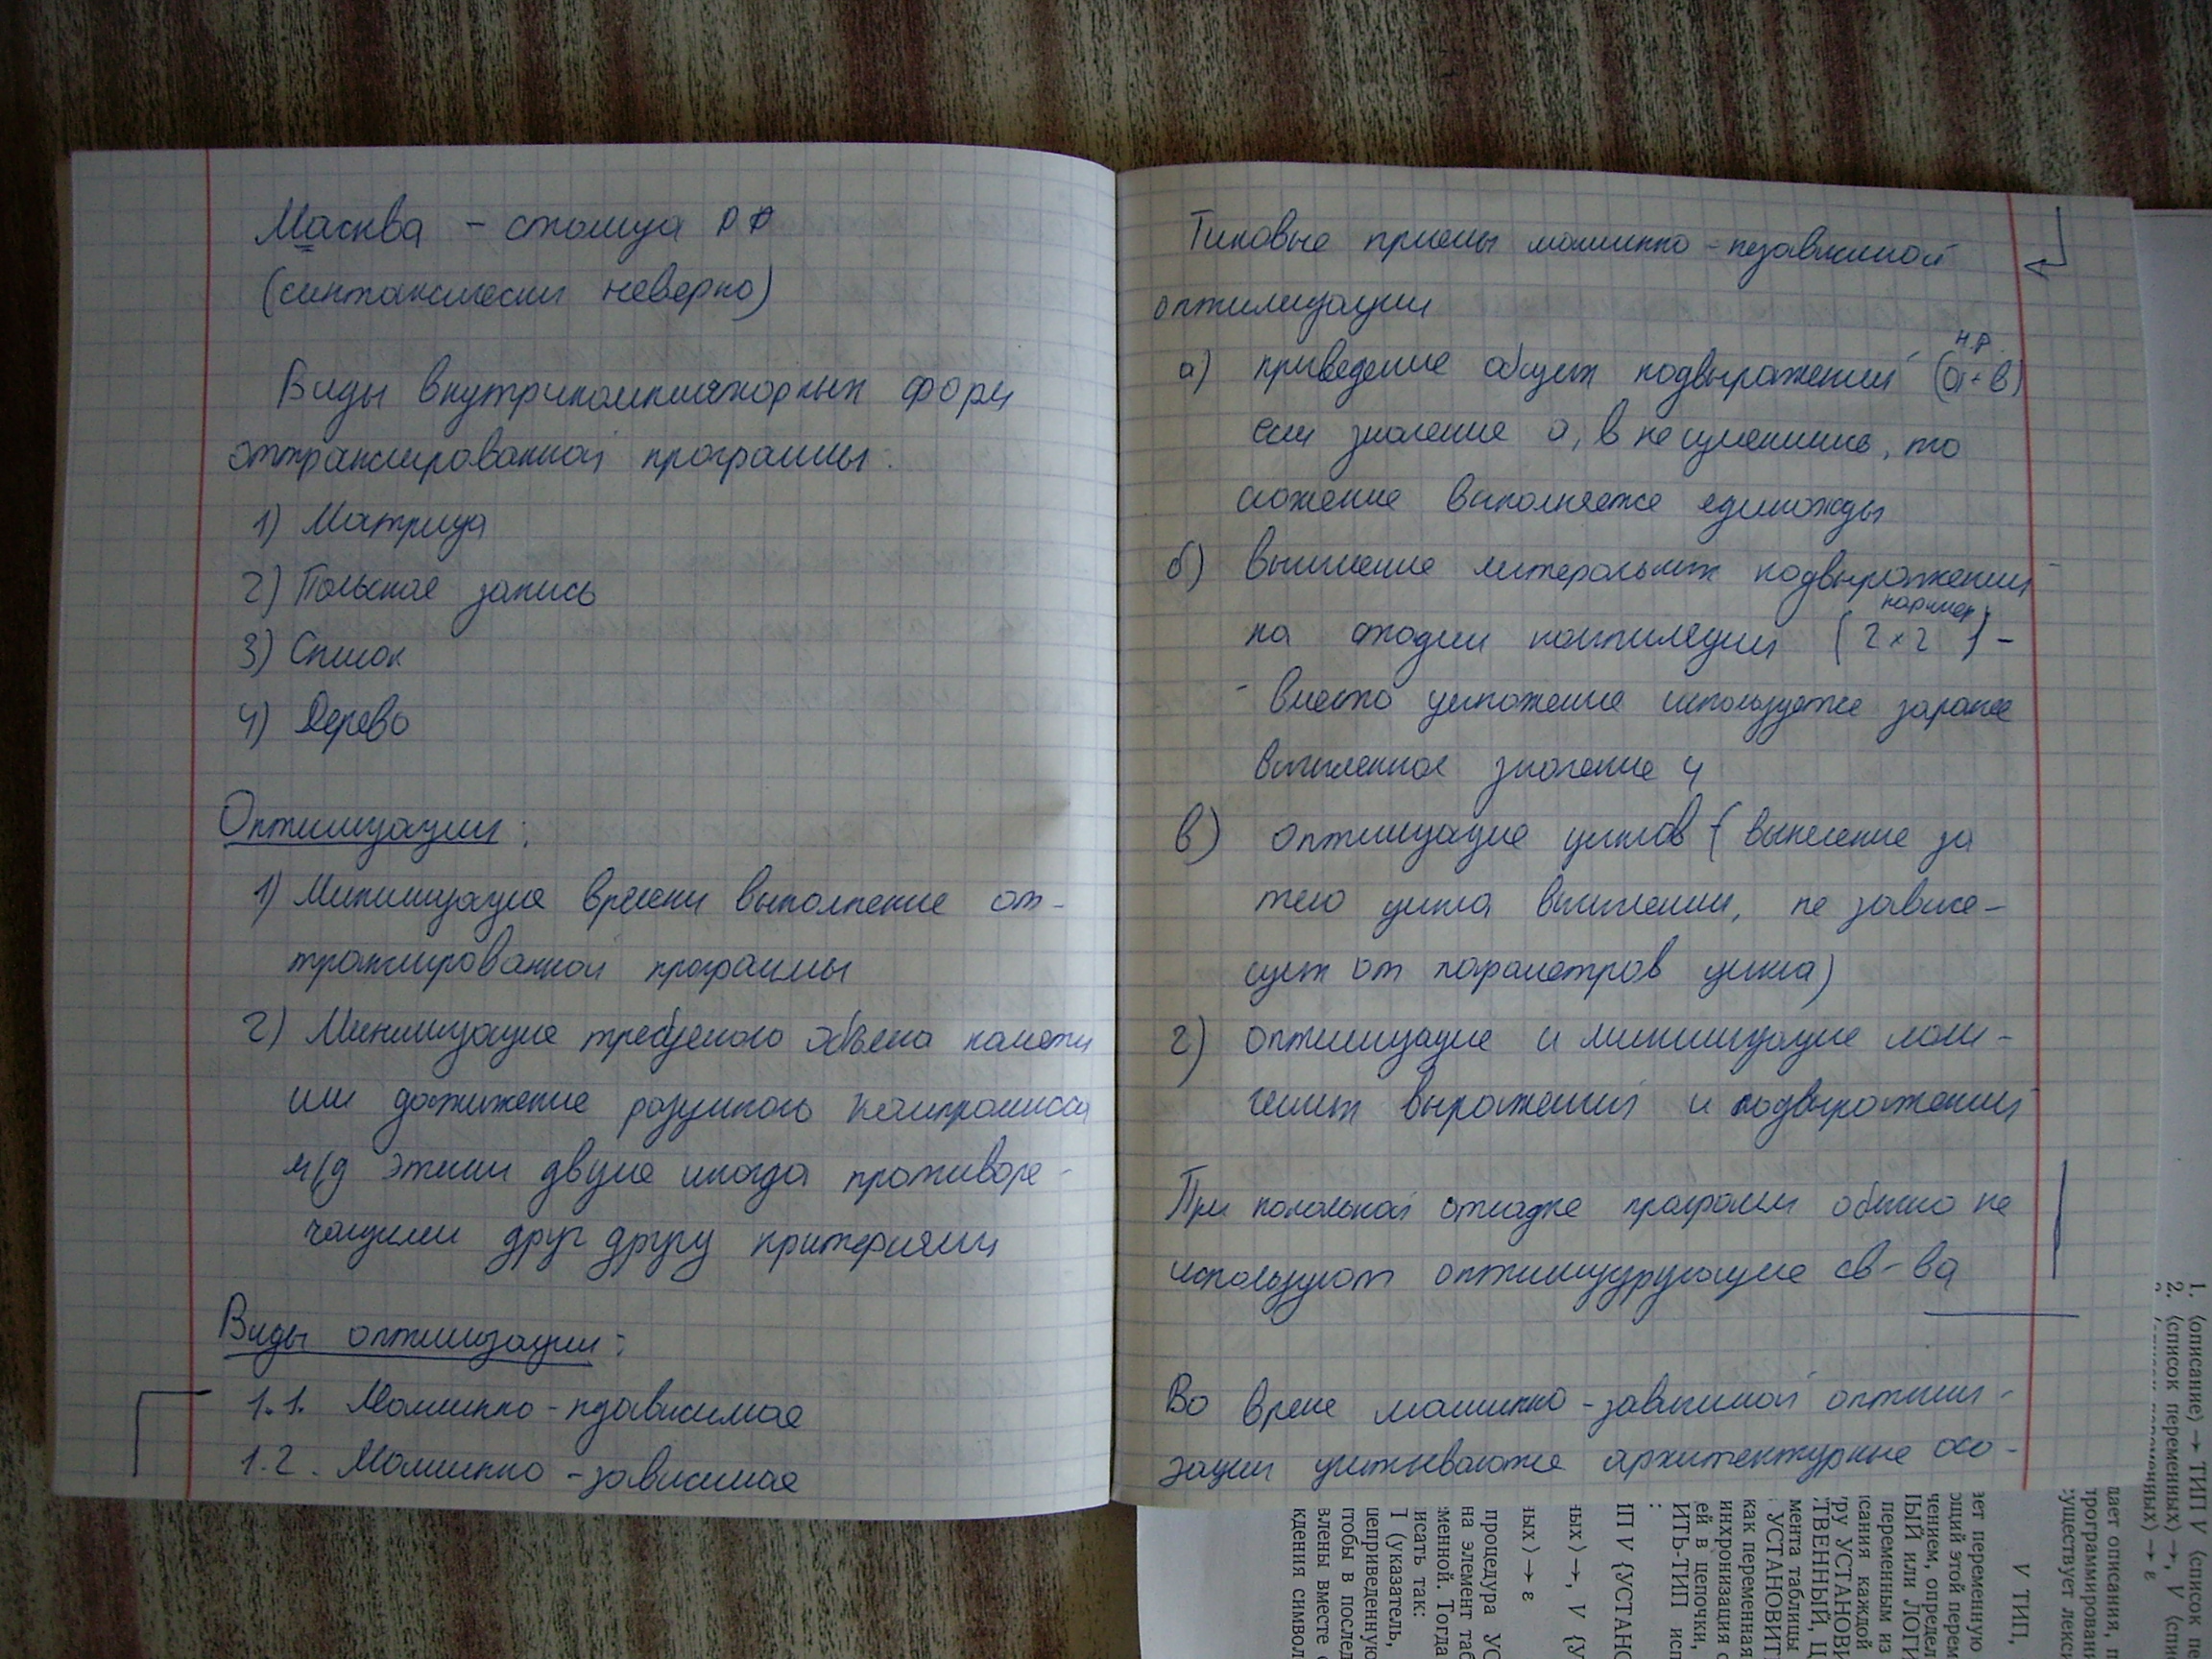 Масква – столица РФ
(синтаксически неверно)
Виды внутрикомпиляторных форм
оттранслированной программы:
1) Матрица
2) Польская запись
3) Список
4) Дерево
Оптимизации:
1) Минимизация времени выполнения от-
транслированной программы
2) Минимизация требуемого объема памяти
или достижение разумного компромисса
м/д этими двумя иногда противоре-
чащими друг другу критериями
Виды оптимизации:
1.1. Машинно-независимая
1.2. Машинно-зависимая
Типовые приемы машинно-независимой
оптимизации
н.р.
а) приведение общих подвыражений (a+b)
если значение a, b не изменились, то
сложение выполняется единожды
б) вычисление литеральных подвыражений
например
на стадии компиляции (2×2) –
- вместо умножения используется заранее
вычисленное значение 4
в) оптимизация циклов (вынесение за
тело цикла вычислений, не завися-
щих от параметров цикла)
г) оптимизация и минимизация логи-
ческих выражений и подвыражений
При начальной отладке программ обычно не
используют оптимизирующие св-ва
Во время машинно-зависимой оптими-
зации учитываются архитектурные осо-
1. ⟨описание⟩ → ТИП V ⟨список пе
2. ⟨список переменных⟩ →, V ⟨спи
дает описания, п
программировани
существует лекси
V ТИП,
ает переменную
ющий этой перем
чением, определ
переменным из
сания каждой
ру УСТАНОВИ
СТВЕННЫЙ, Ц
мента таблицы
УСТАНОВИТ
как переменная
инхронизация с
ей в цепочки,
ИТЬ-ТИП исп
ПП V {УСТАНО
ных⟩ →, V {У
ных⟩ → ε
процедура УС
на элемент таб
менной. Тогда
исать так:
1 (указатель,
цеприведенную
тобы в послед
влены вместе
ждения символ